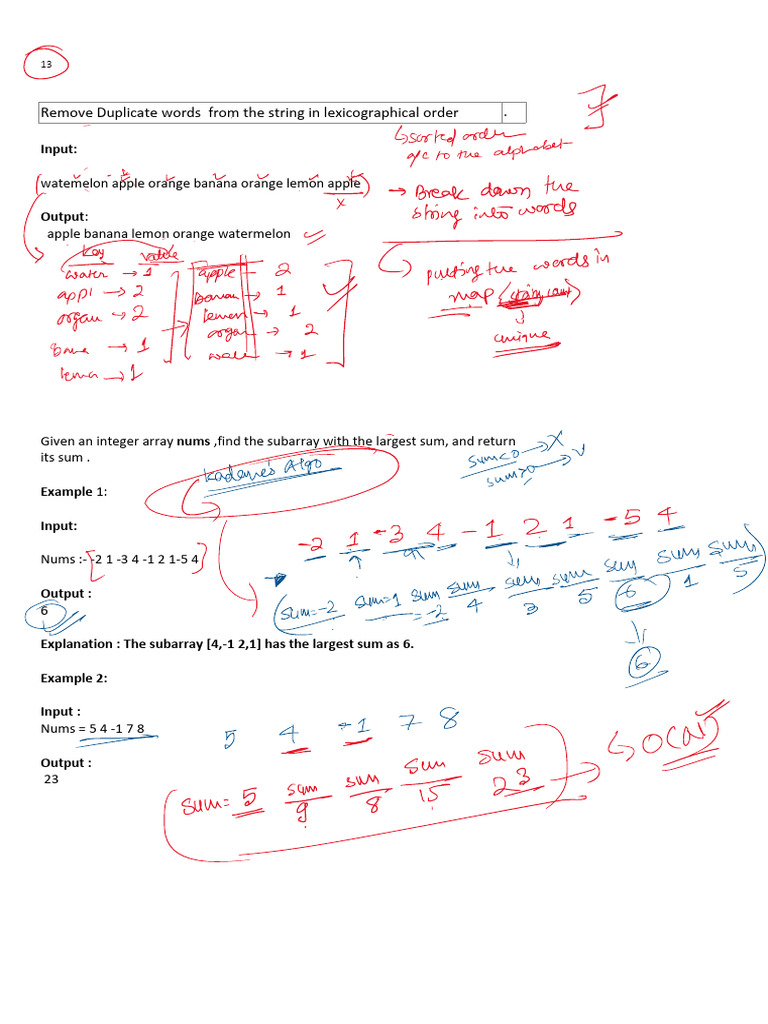 13
Remove Duplicate words from the string in lexicographical order .
↳sorted order
a/c to the alphabet
Input:
watemelon apple orange banana orange lemon apple
x
→ Break down the
string into words
Output:
apple banana lemon orange watermelon
Key Value
water → 1
appl → 2
organ → 2
bana → 1
lemon → 1
apple 2
banan → 1
lemon → 1
organ → 2
wate → 1
putting the words in
map (string, count)
unique
Given an integer array nums ,find the subarray with the largest sum, and return
its sum .
Kadane's Algo
sum<0 → X
sum>0 → v
Example 1:
Input:
-2 1 -3 4 -1 2 1 -5 4
Nums :- -2 1 -3 4 -1 2 1-5 4
Output :
6
sum=-2 sum=1 sum=-2 sum 4 sum 3 sum 5 sum 6 sum 1 sum 5
6
Explanation : The subarray [4,-1 2,1] has the largest sum as 6.
Example 2:
Input :
Nums = 5 4 -1 7 8
5 4 -1 7 8
Output :
23
sum= 5 sum 9 sum 8 sum 15 sum 23
↳ O(N)